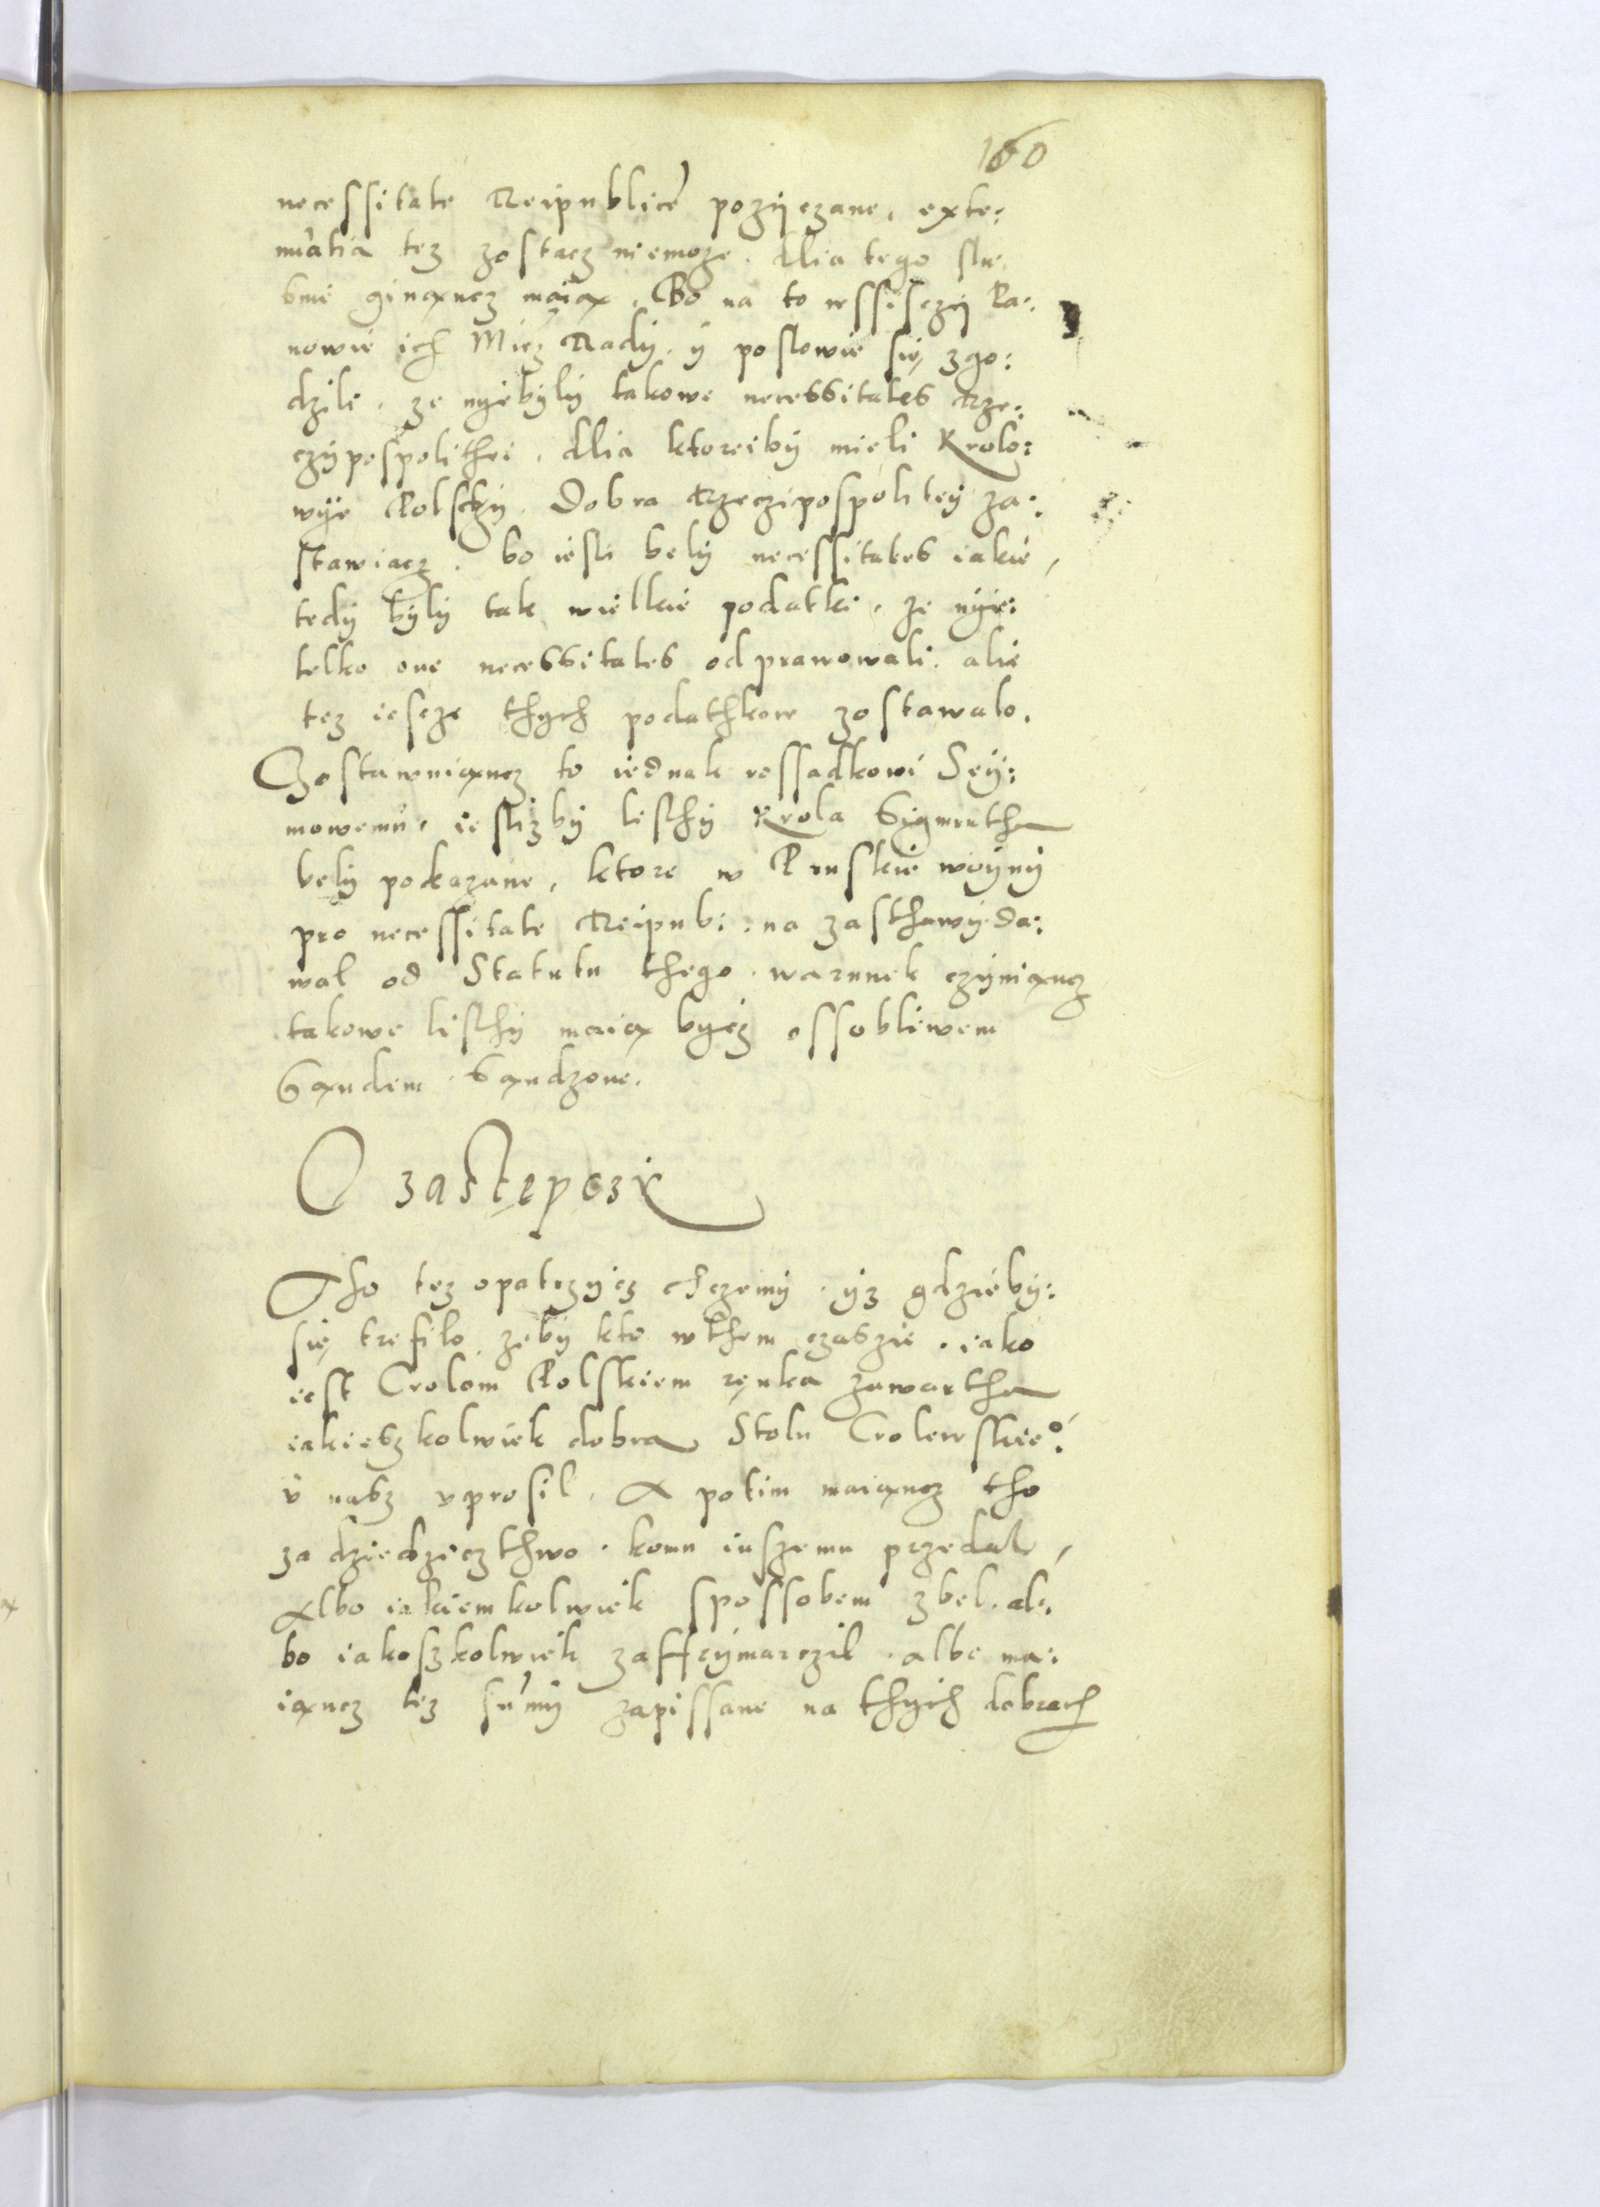 160
necessitate Reipublice pozÿczane, exte:
nuatia tez zostacz niemoze. dlia tego slu
snie ginąncz maią. Bo na to wssisczÿ Pa:
nowie ich Micz Radÿ. ÿ poslowie się zgo:
dzili. ze nyebÿlÿ takowe necessitates Rze:
czÿpospolithei. dlia ktoreibÿ mieli Krolo:
wÿe Polsczÿ. Dobra Rzeczipospolitey za:
stawiacz. bo iesli belÿ necessitates iakie,
tedÿ bÿlÿ tak wielkie podatki, ze nÿie:
telko one necessitates odprawowali. alie
tez iescze thych podathkow zostawalo.
Zostawuiąncz to iednak rossadkowi Seÿ:
mowemu, ieslizbÿ listhÿ Krola Sigmutha
belÿ pokazane, ktore w Pruskie woÿnÿ
pro necessitate Reipub: na zasthawÿ da:
wal od Statutu thego. warunek czÿniąncz
takowe listhÿ maią bycz ossobliwem
Sąndem sąndzone.
O zastępcziech
Tho tez opatrzycz chczemÿ. ÿz gdziebÿ:
się trefilo, zebÿ kto wthem czaszie. iako
iest Crolom Polskiem ręnka zawartha
iakieszkolwiek dobra Stolu Crolewskie°:
v nasz vprosil. A potim maiąncz tho
za dziedziczthwo. komu inszemu przedal,
Albo iakiemkolwiek spossobem zbel. al:
bo iakoszkolwiek zaffrÿmarczil. albo ma:
iąncz tez sumÿ zapissane na thych dobrach